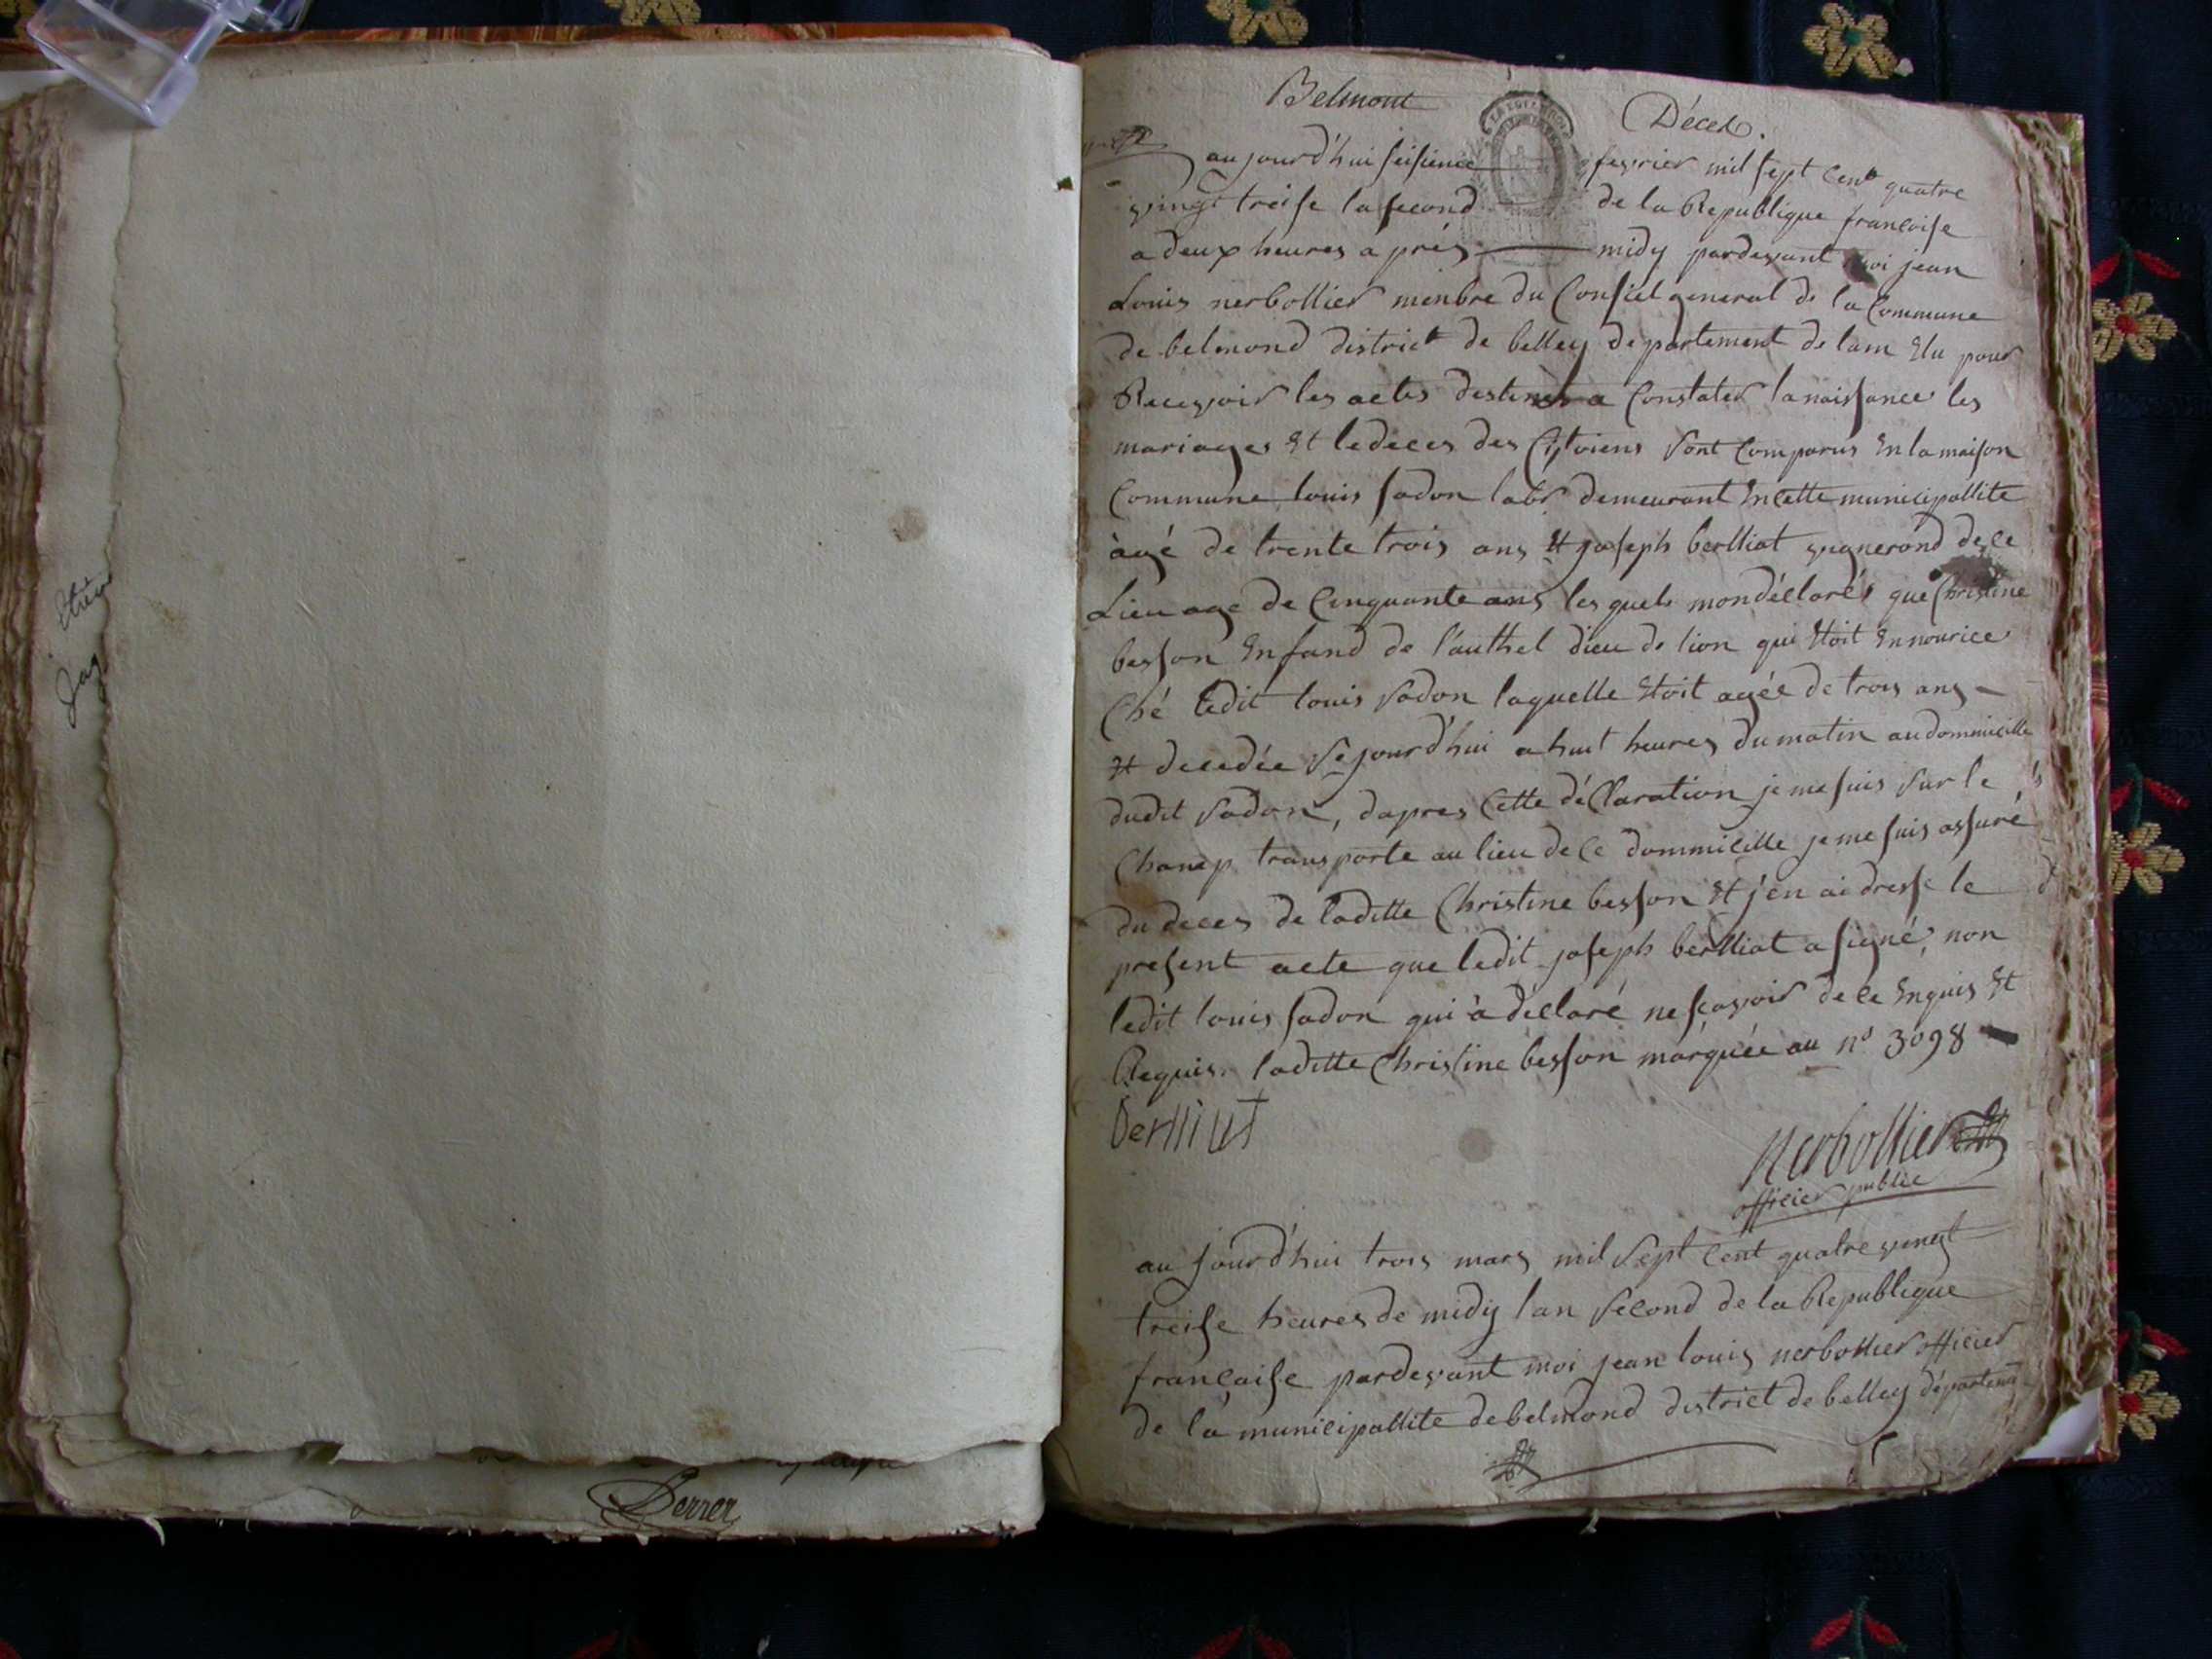 Belmont
Décès.
aujourd'hui seisieme fevrier mil sept cent quatre
vingt treise la second de la Republique francoise
a deux heures aprés midy pardevant moi jean
Louis nerbollier menbre du Consiel general de la Commune
de belmond district de belley departement de lain Elu pour
Recevoir les actes destinés a Constater la naissance les
mariages Et le deces des Citoiens sont Comparus En la maison
Commune louis sadon labr demeurant En cette municipallite
àgé de trente trois ans Et joseph berlliat vignerond de ce
Lieu age de Cinquante ans les quels mon déclarés que Christine
besson Enfand de l'authel dieu de lion qui Etoit En nourice
Ché ledit louis sadon laquelle Etoit agée de trois ans
Et decedée sejourd'hui a huit heures du matin au dommicille
dudit sadon, dapres Cette déClaration je me suis sur le
Chanp transporte au lieu de ce dommicille je me suis assuré
du deces de laditte Christine besson Et j'en ai dressé le
present acte que ledit joseph berlliat a signé, non
ledit louis sadon qui à déclaré ne scavoir de ce Enquis Et
Requis. laditte Christine besson marquée au n° 3098
berlliat
Nerbollier
officier public
aujourd'hui trois mars mil sept Cent quatre vingt
treise heures de midy lan second de la Republique
française pardevant moi jean louis nerbollier officier
de la municipallite de belmond district de belley départem
Derrer